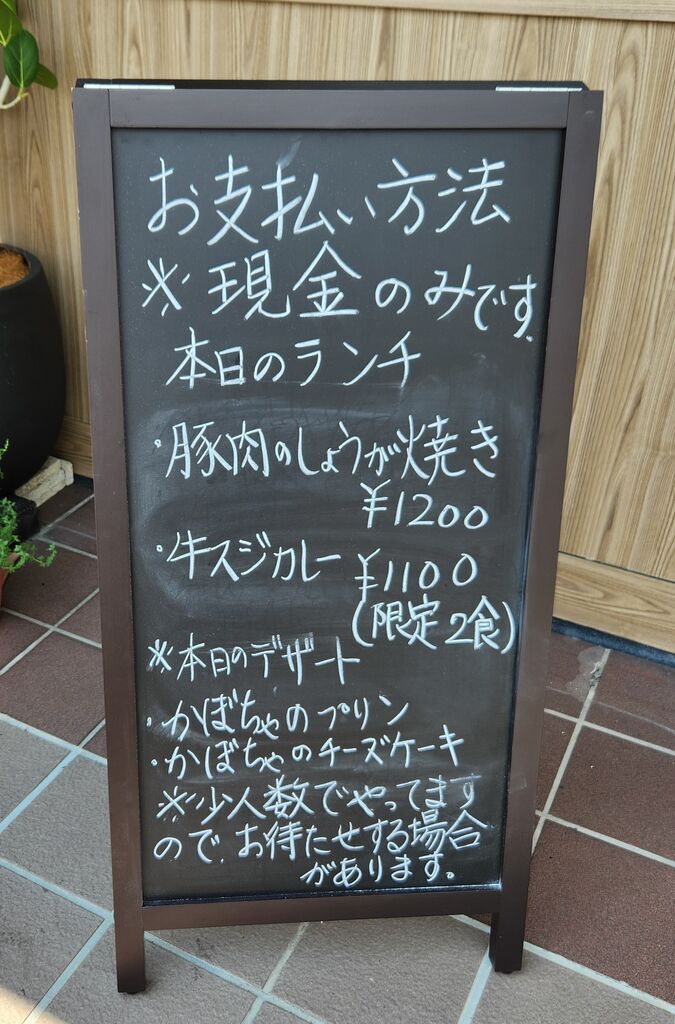 お支払い方法
※現金のみです.
本日のランチ
・豚肉のしょうが焼き
¥1200
・牛スジカレー ¥1100
(限定2食)
※本日のデザート
・かぼちゃのプリン
・かぼちゃのチーズケーキ
※少人数でやってます
ので、お待たせする場合
があります。